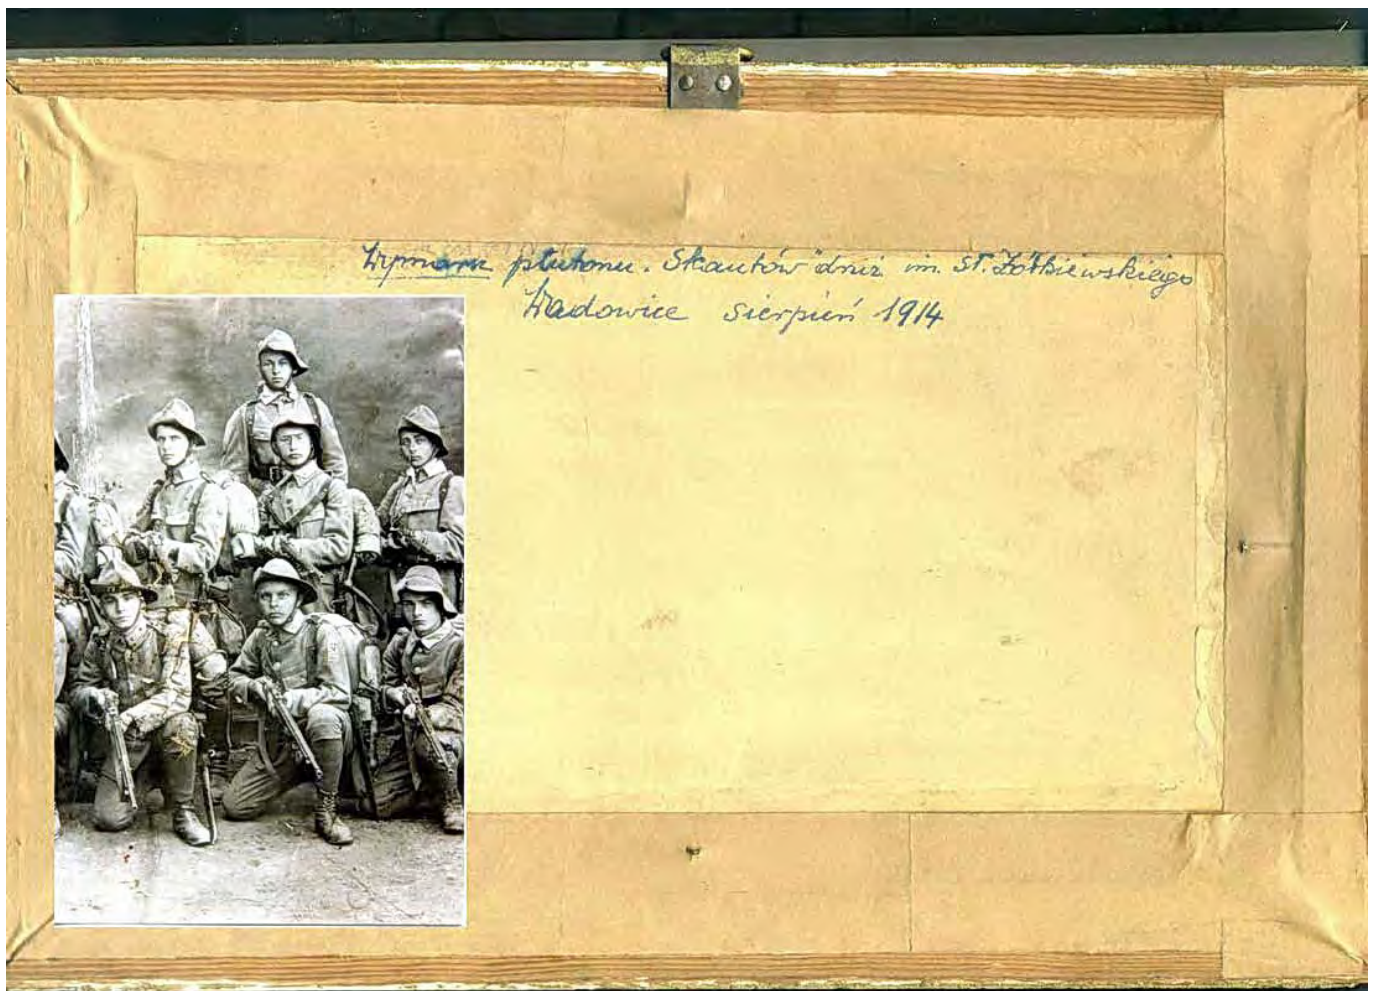 Wymarsz plutonu. Skautów "druż im. St. Żółkiewskiego
Wadowice sierpień 1914